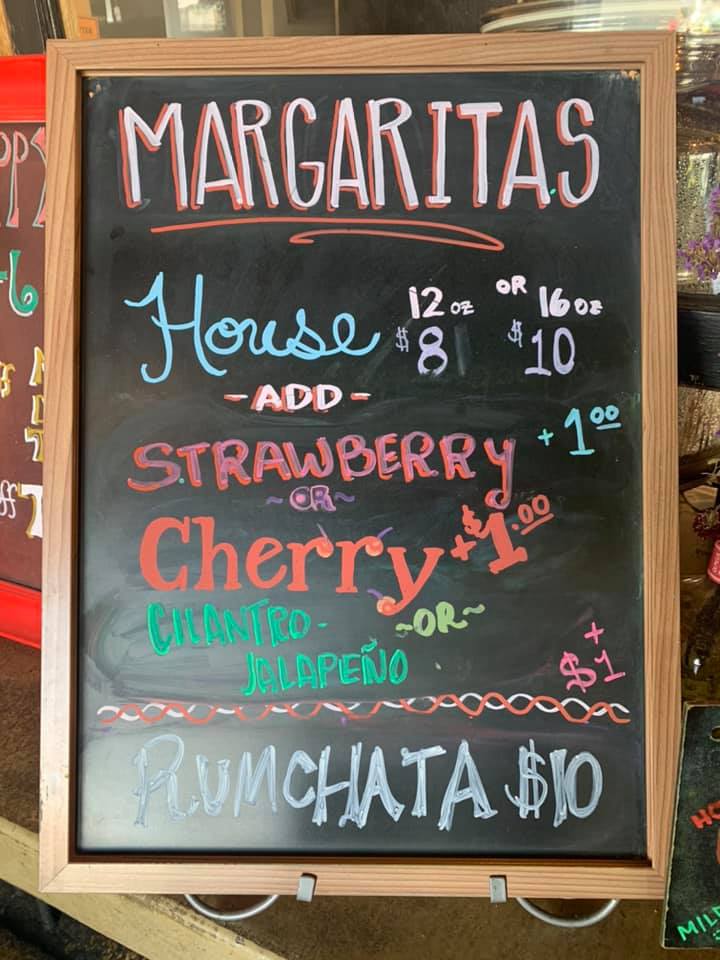 MARGARITAS
House 12 oz OR 16 oz
$8 $10
- ADD -
STRAWBERRY + 1.00
~ OR ~
Cherry + $1.00
CILANTRO - ~OR~
JALAPEÑO + $1
RUMCHATA $10
MILD